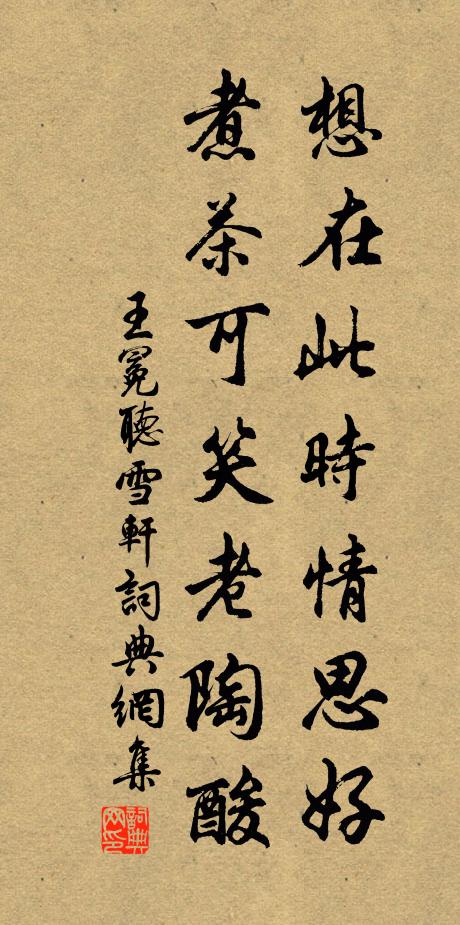 想在此時情思好
煮茶可笑老陶酸
王冕聽雪軒詞典網集
詞典
网印